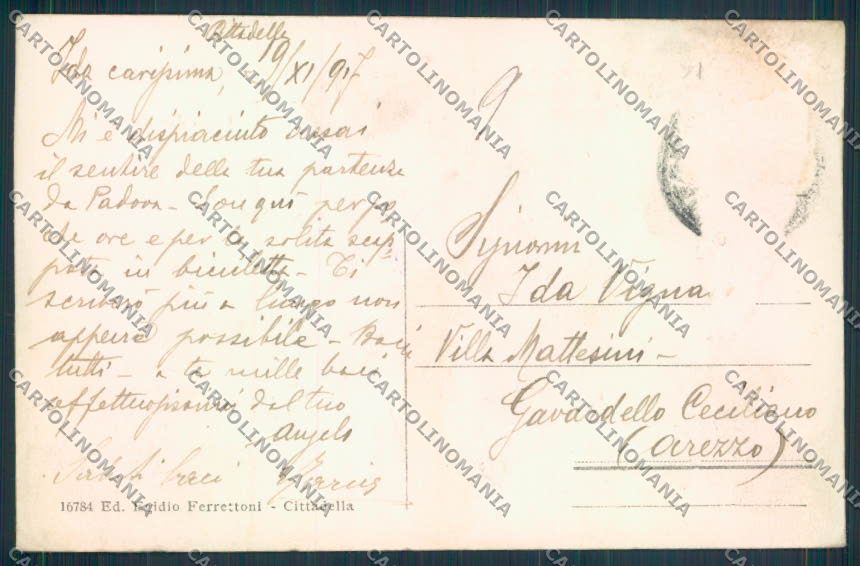 Cittadella
Ida carissima, 19/XI/917
Mi è dispiaciuto assai
il sentire della tua partenza
da Padova - Son qui per po
che ore e per la solita scap
pata in bicicletta - Ti
scriverò più a lungo non
appena possibile - Baci
tutti - a te mille baci
affettuosissimi dal tuo
Angelo
baci
9
Signorina
Ida Vigna
Villa Mattesini -
Gavadello Ceciliano
(Arezzo)
16784 Ed. Egidio Ferrettoni - Cittadella
CARTOLINOMANIA